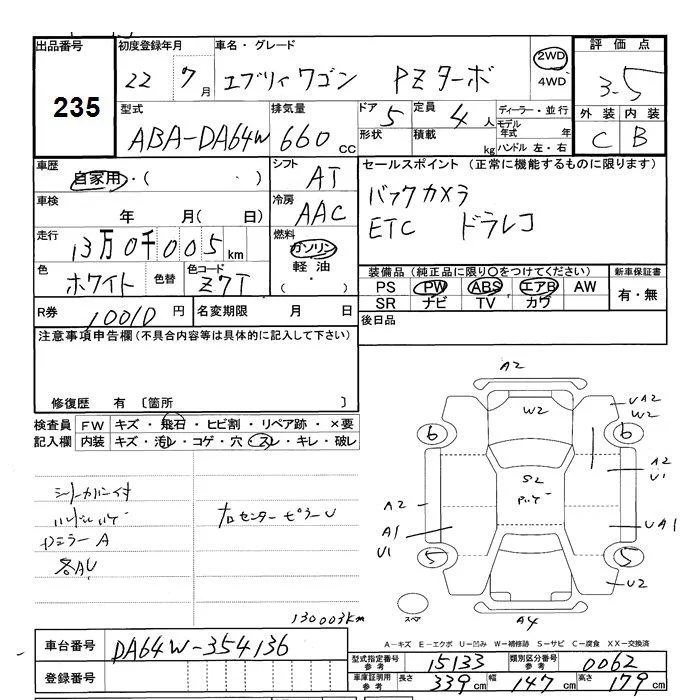 出品番号 初度登録年月 車名・グレード 評価点
235 22 7月 エブリィワゴン PZターボ 2WD 4WD 3.5
型式 排気量 ドア 5 定員 4人 ディーラー・並行 外装 内装
ABA-DA64W 660cc 形状 積載 kg モデル年式 年 ハンドル 左・右 C B
車歴 自家用・( ) シフト AT セールスポイント (正常に機能するものに限ります)
車検 年 月( 日) 冷房 AAC バックカメラ
走行 13万0千005km 燃料 ガソリン 軽油 ( ・ ) ETC ドラレコ
色 ホワイト 色替 色コード Z7T 装備品(純正品に限り○をつけてください) 新車保証書
PS PW ABS エアB AW 有・無
SR ナビ TV カワ
R券 10010円 名変期限 月 日 後日品
注意事項申告欄(不具合内容等は具体的に記入して下さい)
修復歴 有 〔箇所 〕
検査員記入欄 FW キズ・飛石・ヒビ割・リペア跡・×要
内装 キズ・汚レ・コゲ・穴・スレ・キレ・破レ
シートカバー付
ミラーA
各AU
センターピラーU
A2
W2
UA2
W2
6 6
S2
A2
U1
A2
A1
U1
UA1
5 5
U2
スペア
A4
130003km
A-キズ E-エクボ U-凹み W-補修跡 S-サビ C-腐食 XX-交換済
車台番号 DA64W-354136
登録番号
型式指定番号 参考 15133 類別区分番号 参考 0062
車庫証明用 参考 長さ 339cm 幅 147cm 高さ 179cm